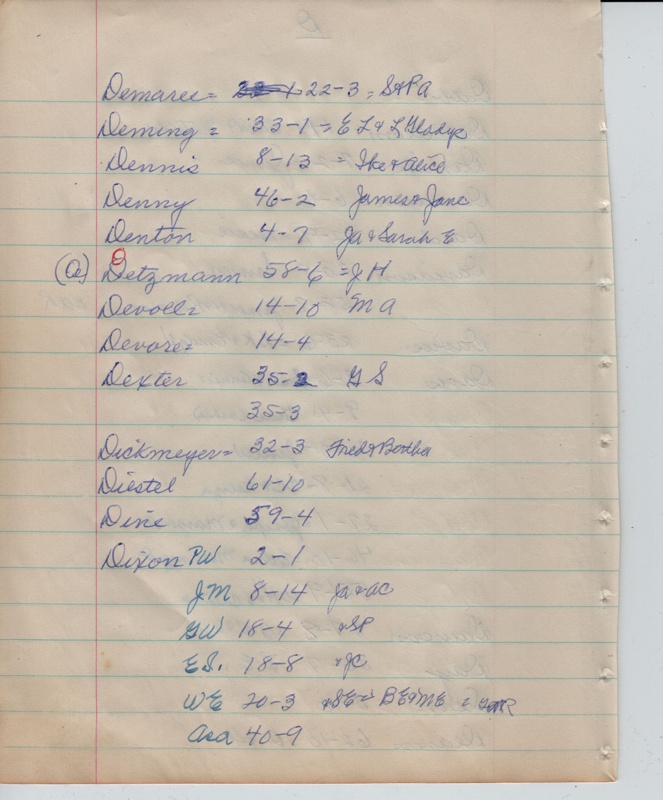 D
Demaree = 22-3 = S & P A
Deming = 33-1 = E L & L Gladys
Dennis 8-13 = Ike & Alice
Denny 46-2 James & Jane
Denton 4-7 Ja & Sarah E
(a) Detzmann 58-6 = J H
Devoel = 14-10 M A
Devore = 14-4
Dexter 35-2 G S
35-3
Dickmeyer = 32-3 Fred & Bertha
Diestel 61-10
Dine 59-4
Dixon PW 2-1
JM 8-14 Ja & AC
GW 18-4 & SP
E S. 18-8 & JC
WE 20-3 & SE = BE & ME =
Asa 40-9